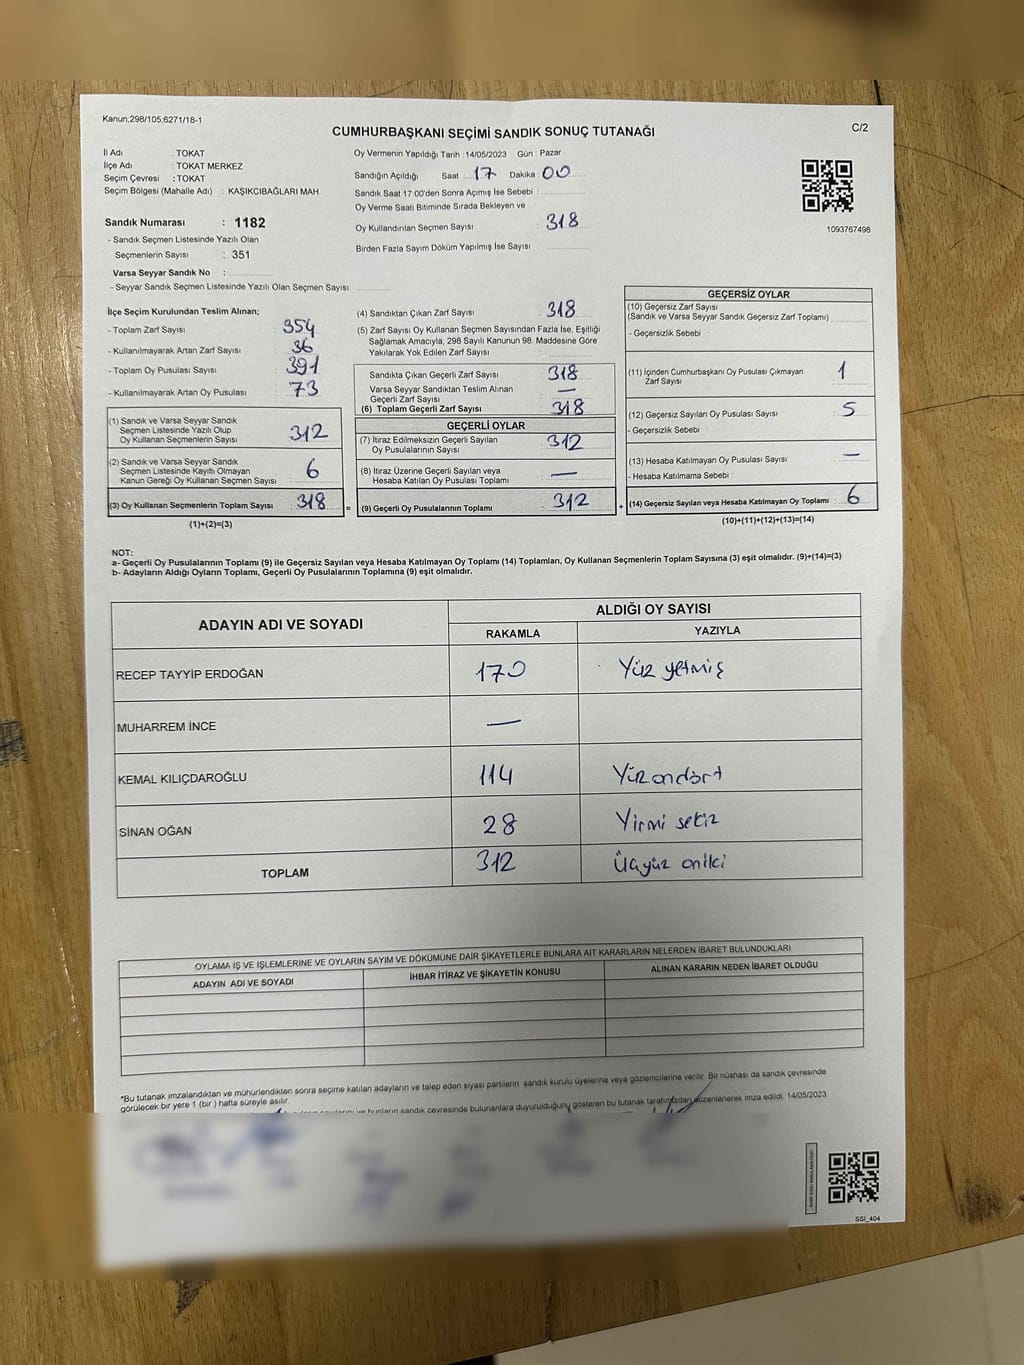 Kanun,298/105,6271/18-1
CUMHURBAŞKANI SEÇİMİ SANDIK SONUÇ TUTANAĞI
C/2
İl Adı : TOKAT
İlçe Adı : TOKAT MERKEZ
Seçim Çevresi : TOKAT
Seçim Bölgesi (Mahalle Adı) : KAŞIKCIBAĞLARI MAH.
Oy Vermenin Yapıldığı Tarih :14/05/2023 Gün : Pazar
Sandığın Açıldığı Saat : 17 Dakika : 00
Sandık Saat 17:00'den Sonra Açımış İse Sebebi :
Oy Verme Saati Bitiminde Sırada Bekleyen ve
Oy Kullandırılan Seçmen Sayısı : 318
Birden Fazla Sayım Döküm Yapılmış İse Sayısı :
1093767498
Sandık Numarası : 1182
- Sandık Seçmen Listesinde Yazılı Olan
Seçmenlerin Sayısı : 351
Varsa Seyyar Sandık No :
- Seyyar Sandık Seçmen Listesinde Yazılı Olan Seçmen Sayısı:
İlçe Seçim Kurulundan Teslim Alınan;
- Toplam Zarf Sayısı : 354
- Kullanılmayarak Artan Zarf Sayısı : 36
- Toplam Oy Pusulası Sayısı : 391
- Kullanılmayarak Artan Oy Pusulası : 73
(1) Sandık ve Varsa Seyyar Sandık
Seçmen Listesinde Yazılı Olup
Oy Kullanan Seçmenlerin Sayısı : 312
(2) Sandık ve Varsa Seyyar Sandık
Seçmen Listesinde Kayıtlı Olmayan
Kanun Gereği Oy Kullanan Seçmen Sayısı : 6
(3) Oy Kullanan Seçmenlerin Toplam Sayısı : 318 =
(1)+(2)=(3)
(4) Sandıktan Çıkan Zarf Sayısı : 318
(5) Zarf Sayısı Oy Kullanan Seçmen Sayısından Fazla İse, Eşitliği
Sağlamak Amacıyla; 298 Sayılı Kanunun 98. Maddesine Göre
Yakılarak Yok Edilen Zarf Sayısı :
Sandıkta Çıkan Geçerli Zarf Sayısı : 318
Varsa Seyyar Sandıktan Teslim Alınan
Geçerli Zarf Sayısı : —
(6) Toplam Geçerli Zarf Sayısı : 318
GEÇERLİ OYLAR
(7) İtiraz Edilmeksizin Geçerli Sayılan
Oy Pusulalarının Sayısı : 312
(8) İtiraz Üzerine Geçerli Sayılan veya
Hesaba Katılan Oy Pusulası Toplamı : —
(9) Geçerli Oy Pusulalarının Toplamı : 312 +
GEÇERSİZ OYLAR
(10) Geçersiz Zarf Sayısı
(Sandık ve Varsa Seyyar Sandık Geçersiz Zarf Toplamı) :
- Geçersizlik Sebebi :
(11) İçinden Cumhurbaşkanı Oy Pusulası Çıkmayan
Zarf Sayısı : 1
(12) Geçersiz Sayılan Oy Pusulası Sayısı : 5
- Geçersizlik Sebebi :
(13) Hesaba Katılmayan Oy Pusulası Sayısı : —
- Hesaba Katılmama Sebebi :
(14) Geçersiz Sayılan veya Hesaba Katılmayan Oy Toplamı : 6
(10)+(11)+(12)+(13)=(14)
NOT:
a- Geçerli Oy Pusulalarının Toplamı (9) ile Geçersiz Sayılan veya Hesaba Katılmayan Oy Toplamı (14) Toplamları, Oy Kullanan Seçmenlerin Toplam Sayısına (3) eşit olmalıdır. (9)+(14)=(3)
b- Adayların Aldığı Oyların Toplamı, Geçerli Oy Pusulalarının Toplamına (9) eşit olmalıdır.
ADAYIN ADI VE SOYADI
ALDIĞI OY SAYISI
RAKAMLA YAZIYLA
RECEP TAYYİP ERDOĞAN 170 Yüz yetmiş
MUHARREM İNCE —
KEMAL KILIÇDAROĞLU 114 Yüzondört
SİNAN OĞAN 28 Yirmi sekiz
TOPLAM 312 Üçyüz oniki
OYLAMA İŞ VE İŞLEMLERİNE VE OYLARIN SAYIM VE DÖKÜMÜNE DAİR ŞİKAYETLERLE BUNLARA AİT KARARLARIN NELERDEN İBARET BULUNDUKLARI
ADAYIN ADI VE SOYADI İHBAR İTİRAZ VE ŞİKAYETİN KONUSU ALINAN KARARIN NEDEN İBARET OLDUĞU
*Bu tutanak imzalandıktan ve mühürlendikten sonra seçime katılan adayların ve talep eden siyasi partilerin sandık kurulu üyelerine veya gözlemcilerine verilir. Bir nüshası da sandık çevresinde
görülecek bir yere 1 (bir ) hafta süreyle asılır.
ve bunların sandık çevresinde bulunanlara duyurulduğunu gösteren bu tutanak tarafımızdan düzenlenerek imza edildi. 14/05/2023
SSI_404